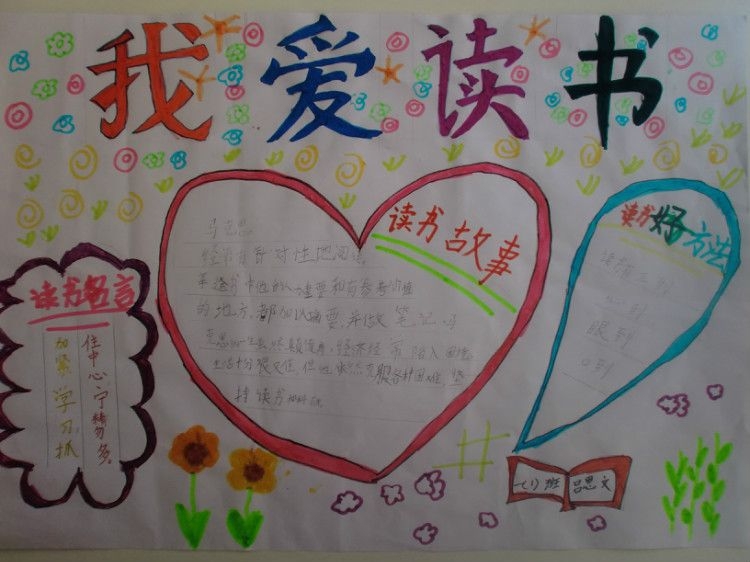 我爱读书
读书故事
马克思
经常有针对性地阅读
书 卡他的认为重要和有参考价值
的地方,都加以摘要,并做笔记。马
克思的一生虽然颠沛,经济经常陷入困境
生活十分很,但他依然克服各种困难,坚
持读书
读书好方法
读书三到
心到
眼到
口到
读书名言
加紧学习,抓
住中心,宁精勿多。
一(1)班 吕思文